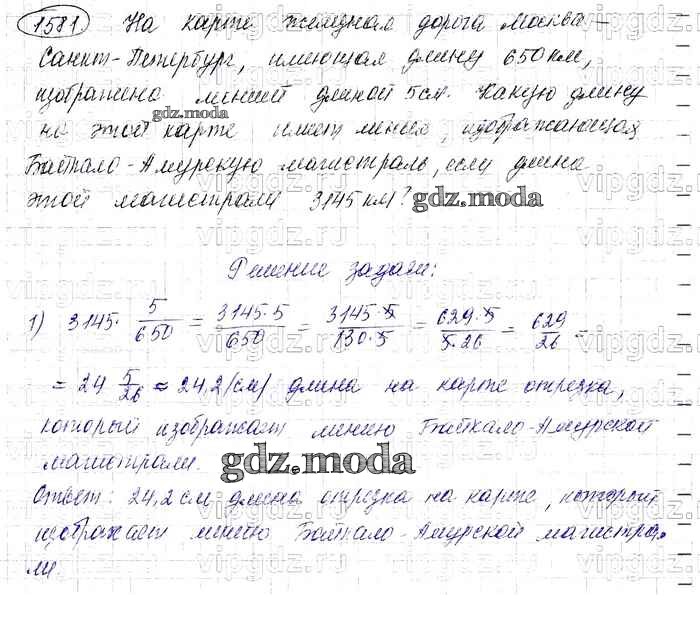 1581 На карте железная дорога Москва –
Санкт-Петербург, имеющая длину 650 км,
изображена линией длиной 5 см. Какую длину
на этой карте имеет линия, изображающая
Байкало-Амурскую магистраль, если длина
этой магистрали 3145 км?
Решение задачи:
1) 3145 · 5/650 = 3145·5/650 = 3145·5/130·5 = 629·5/5·26 = 629/26 =
= 24 5/26 ≈ 24,2 (см) длина на карте отрезка,
который изображает линию Байкало-Амурской
магистрали.
Ответ: 24,2 см длина отрезка на карте, который
изображает линию Байкало-Амурской магистра-
ли.
gdz.moda
gdz.moda
gdz.moda
vipgdz.ru